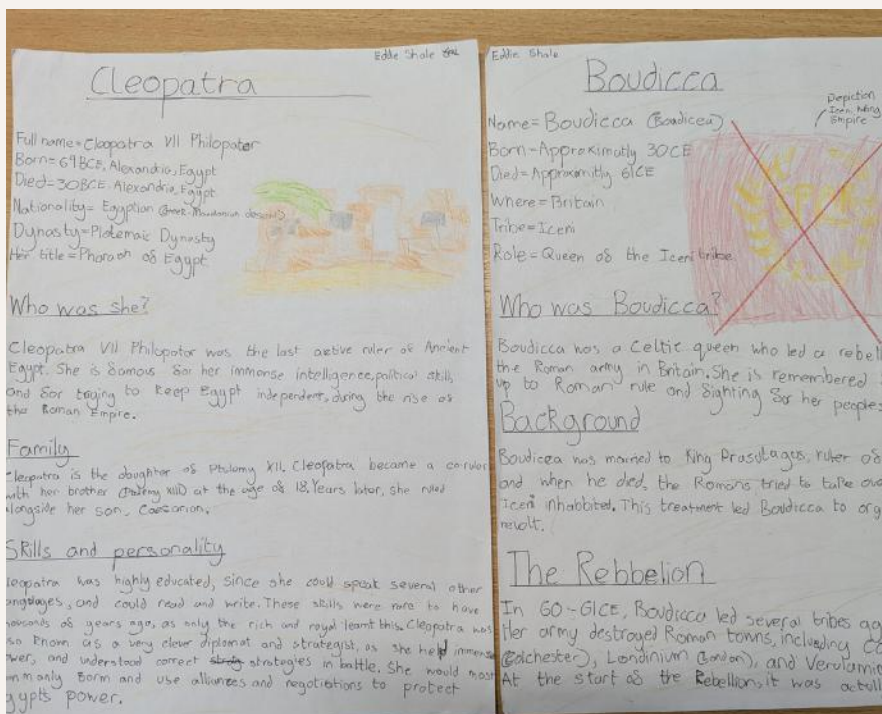 Eddie Shale
Cleopatra
Full name = Cleopatra VII Philopator
Born = 69 BCE, Alexandria, Egypt
Died = 30 BCE, Alexandria, Egypt
Nationality = Egyptian
Dynasty = Ptolemaic Dynasty
Her title = Pharaoh of Egypt
Who was she?
Cleopatra VII Philopator was the last active ruler of Ancient
Egypt. She is famous for her immense intelligence, political skill,
and for trying to keep Egypt independent, during the rise of
the Roman Empire.
Family
Cleopatra is the daughter of Ptolomy XII. Cleopatra became a co-ruler
with her brother (Ptolemy XIII) at the age of 18. Years later, she ruled
alongside her son, Caesarion.
Skills and personality
leopatra was highly educated, since she could speak several other
anguages, and could read and write. These skills were rare to have
ousands of years ago, as only the rich and royal learnt this. Cleopatra was
so known as a very clever diplomat and strategist, as she held immense
wer, and understood correct strategies in battle. She would most
mmonly form and use alliances and negotiations to protect
gypts power.
Eddie Shale
Boudicca
Depiction
Empire
Name = Boudicca (Boadicea)
Born = Approximatly 30CE
Died = Approximitly 61CE
Where = Britain
Tribe = Iceni
Role = Queen of the Iceni tribe
Who was Boudicca?
Boudicca was a Celtic queen who led a rebell
the Roman army in Britain. She is remembered
up to Roman rule and fighting for her people
Background
Boudicca was married to King Prasutagus, ruler of
and when he died, the Romans tried to take ove
Iceni inhabbited. This treatment led Boudicca to org
revolt.
The Rebbelion
In 60-61CE, Boudicca led several tribes aga
Her army destroyed Roman towns, including
(Colchester), Londinium (London), and Verulamiu
At the start of the Rebellion, it was actull